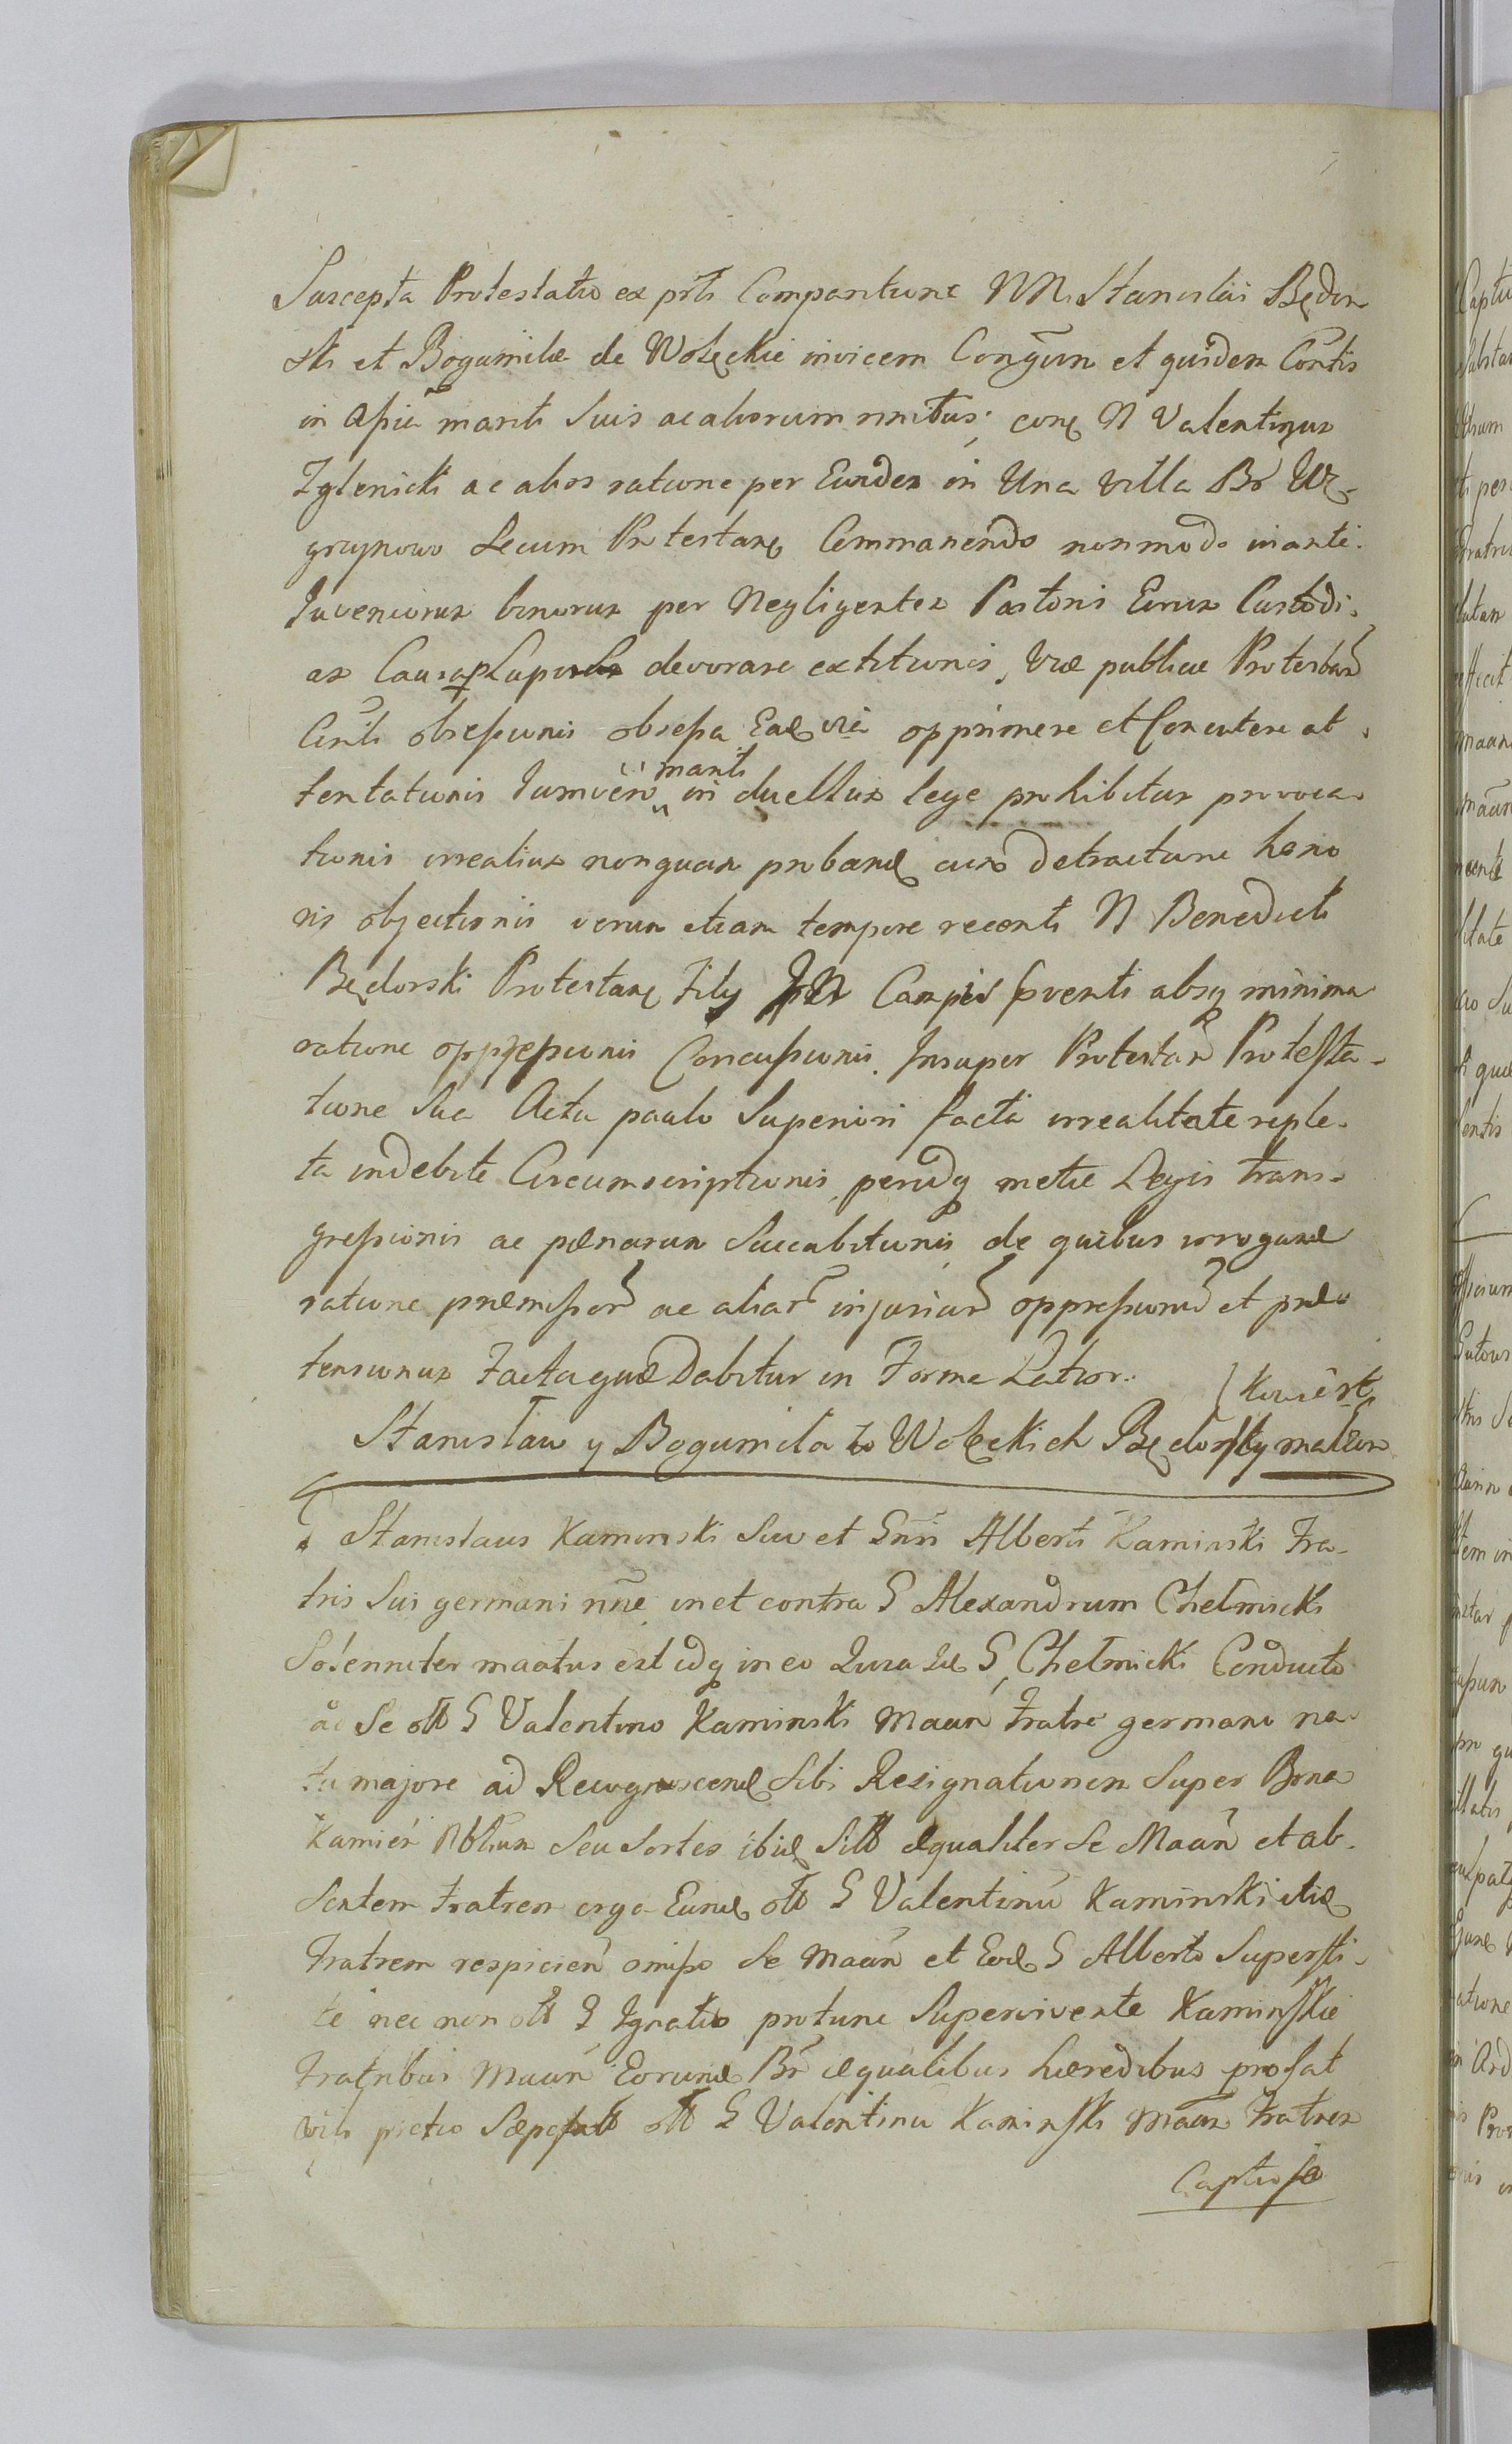 Suscepta Protestatio ex prti Comparitione NN. Stanislai Będor
ski et Bogumilæ de Wołęckie invicem Conjũm et quidem Contis
in Assia mariti Suis ac aliorum nnibus; con N Valentinum
Zglenicki ac alios ratione per Eundem in Una Villa Br Wę-
grzynowo Secum Protestan Commanendo nonmodo
Juvencorum binorum per Negligentem Pastoris Eorum Custodi-
am devorare extitionis, Viæ publicæ Protestan
obsessionis obsessa Eadem via opprimere et Concutere at
tentationis mariti in duellum lege prohibitum provoca-
tionis irrealium nonquam proband cum Detractione hono
ris objectionis verum etiam tempore recenti N Benedicti
Będorski Protestan Filij in Campis inventi absq minima
ratione oppressionis Concussionis. Insuper Protestan Protesta-
tione Sua Acta paulo Superiori facta irrealitate reple-
ta indebite Circumscriptionis, perindq metæ Legis trans-
gressionis ac pœnarum Succubitionis de quibus irrogand
ratione præmissor ac aliar injuriar oppressionu et præ-
tensionum Facta quæ Dabitur in Forma Latior.
Stanisław y Bogumiła z Wołęckich Będorscy małżon
Stanislaus Kaminski Suo et Gnsi Alberti Kaminski Fra-
tris Sui germani nne in et contra G Alexandrum Chełmicki
Solenniter maatus est idq in eo Quia Idem G Chełmicki Conducto
ad Se olt G Valentino Kaminski Maan Fratre germano na
tu majore ad Recognoscend Sibi Resignationem Super Bona
Kamień Nblium Seu Sortes ibid Sitt æqualiter Se Maan et ab-
sentem Fratrem erga Eund olt G Valentinu Kaminski
Fratrem respicien omisso Se Maan et Eod G Alberto Supersti-
te nec non olt G Ignatio protunc Supervivente Kaminskie
Fratribus Maan Eorund Br æqualibus hæredibus pro sat
vili pretio Sæpefatt olt G Valentinu Kaminski Maan Fratrem
Captiose